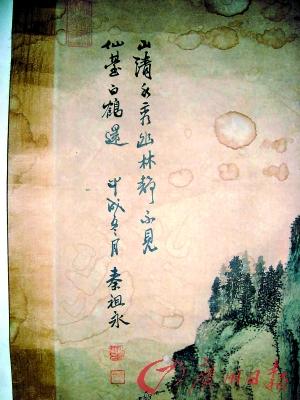 山清水秀幽林静不見
仙臺白鶴還 甲戌冬月 秦祖永
广州日报